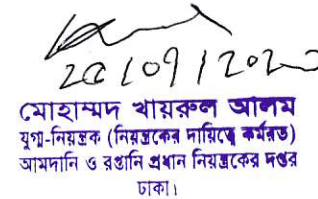 20/09/2020
মোহাম্মদ খায়রুল আলম
যুগ্ম-নিয়ন্ত্রক (নিয়ন্ত্রকের দায়িত্বে কর্মরত)
আমদানি ও রপ্তানি প্রধান নিয়ন্ত্রকের দপ্তর
ঢাকা।